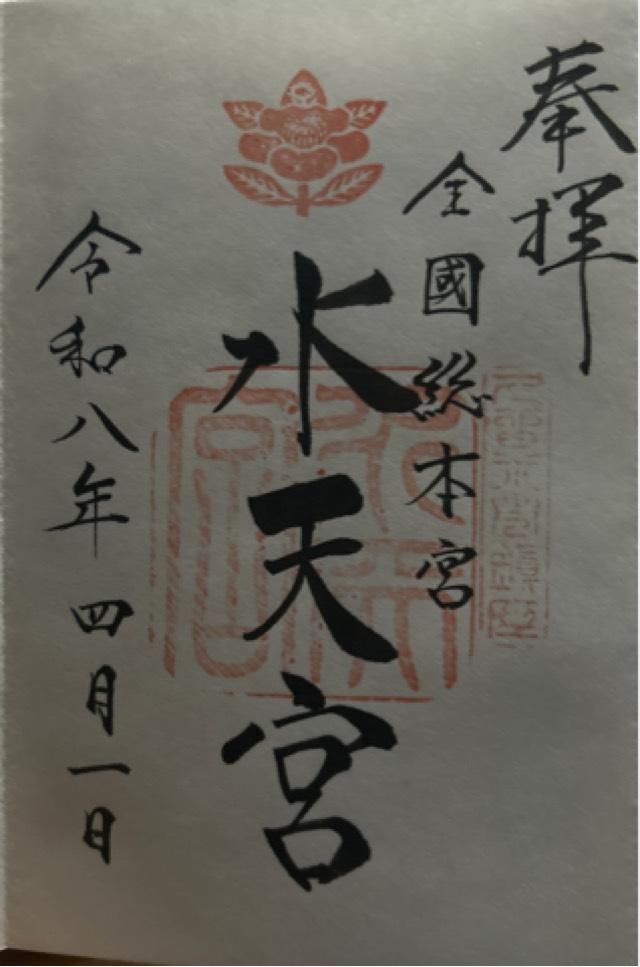 奉拝
全國総本宮
水天宮
令和八年四月一日